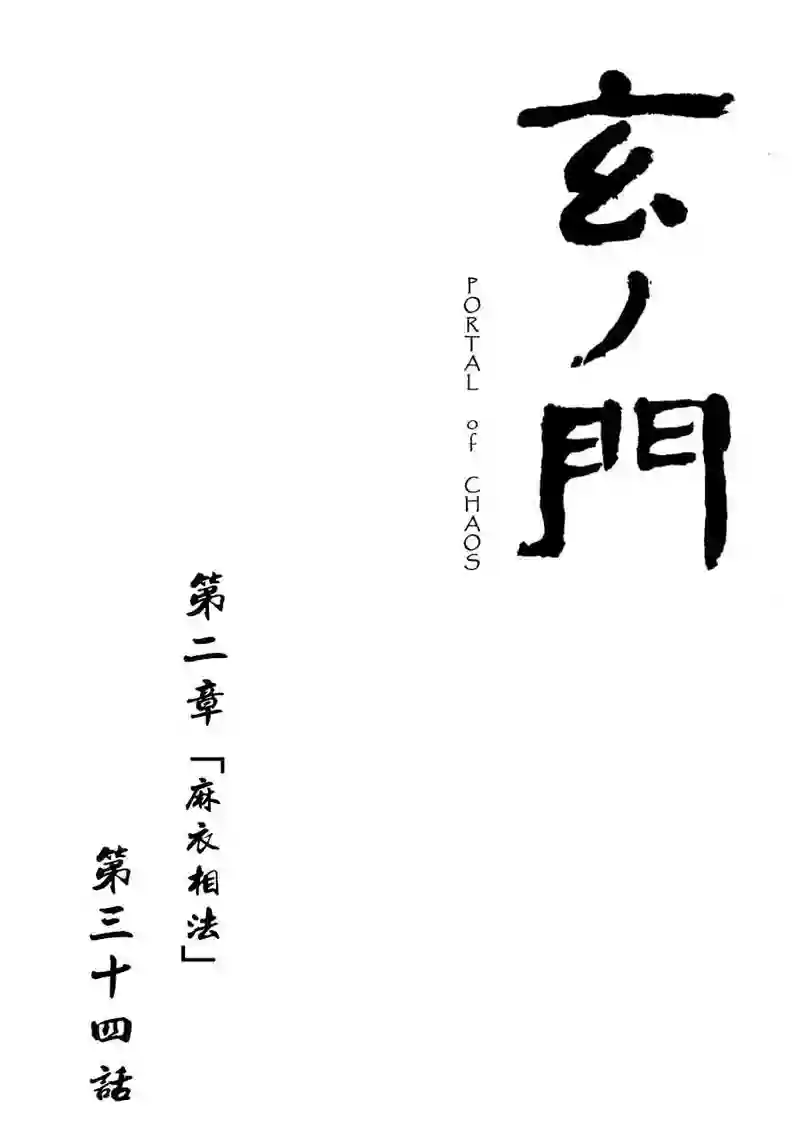 玄ノ門
PORTAL of CHAOS
第二章「麻衣相法」
第三十四話